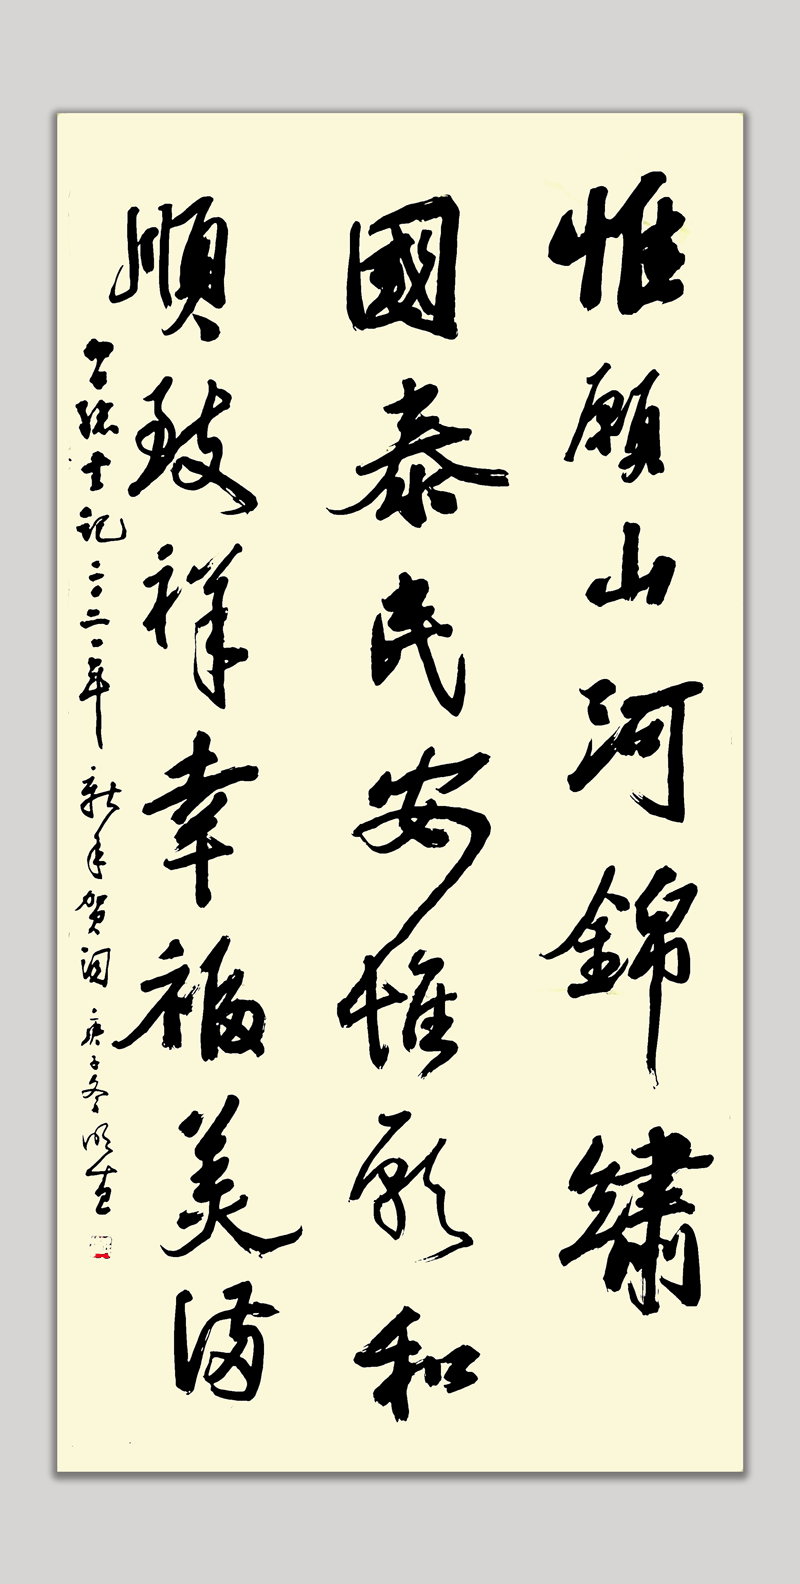 惟願山河錦繡
國泰民安惟願和
順致祥幸福美满
習總书记二〇二一年新年贺词庚子冬